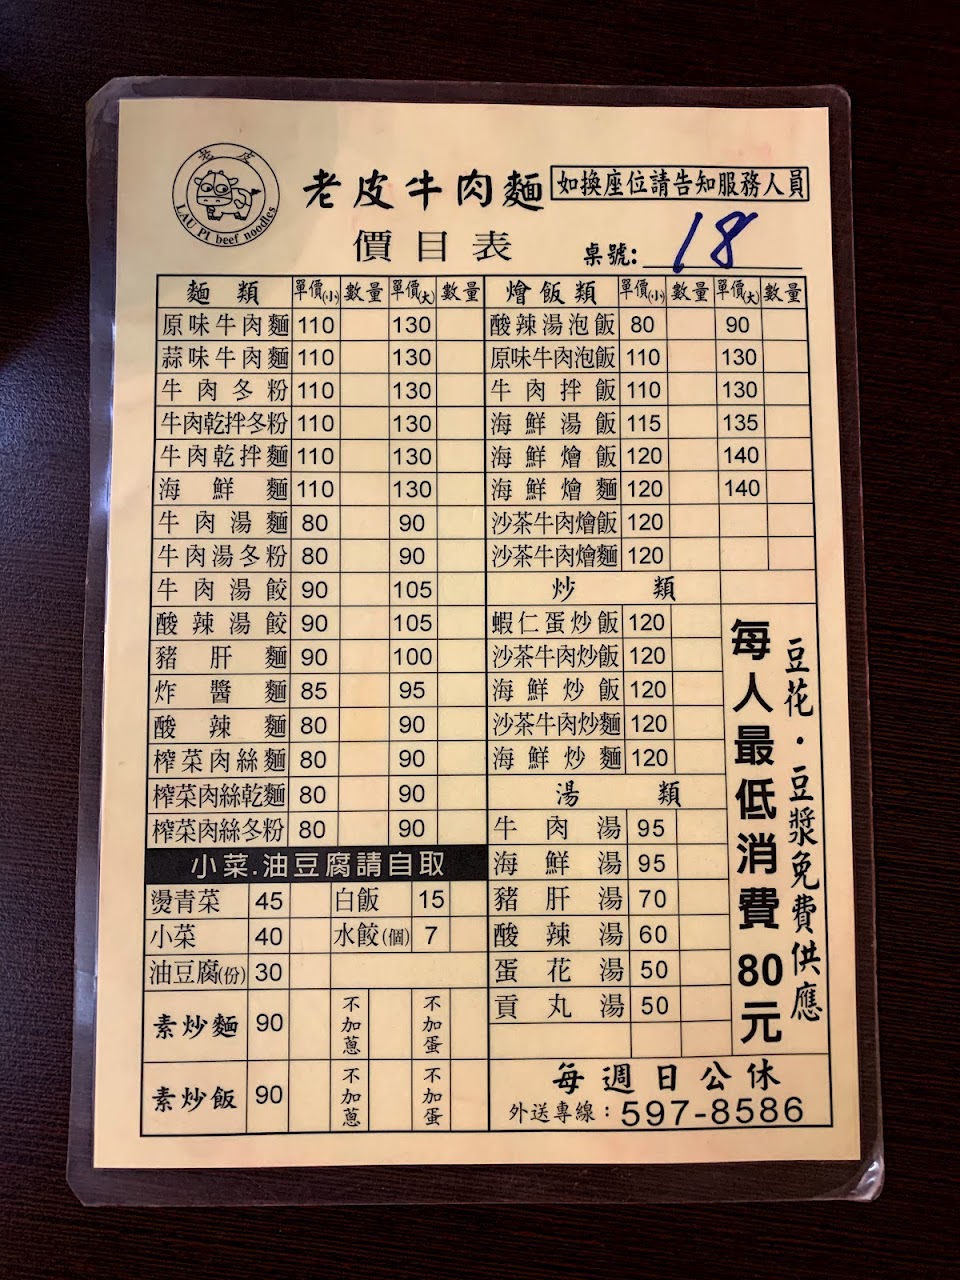 老皮
LAU PI beef noodles
老皮牛肉麵 如換座位請告知服務人員
價目表 桌號: 18
麵類 單價(小) 數量 單價(大) 數量
原味牛肉麵 110 130
蒜味牛肉麵 110 130
牛肉冬粉 110 130
牛肉乾拌冬粉 110 130
牛肉乾拌麵 110 130
海鮮麵 110 130
牛肉湯麵 80 90
牛肉湯冬粉 80 90
牛肉湯餃 90 105
酸辣湯餃 90 105
豬肝麵 90 100
炸醬麵 85 95
酸辣麵 80 90
榨菜肉絲麵 80 90
榨菜肉絲乾麵 80 90
榨菜肉絲冬粉 80 90
小菜.油豆腐請自取
燙青菜 45 白飯 15
小菜 40 水餃(個) 7
油豆腐(份) 30
素炒麵 90 不加蔥 不加蛋
素炒飯 90 不加蔥 不加蛋
燴飯類 單價(小) 數量 單價(大) 數量
酸辣湯泡飯 80 90
原味牛肉泡飯 110 130
牛肉拌飯 110 130
海鮮湯飯 115 135
海鮮燴飯 120 140
海鮮燴麵 120 140
沙茶牛肉燴飯 120
沙茶牛肉燴麵 120
炒類
蝦仁蛋炒飯 120
沙茶牛肉炒飯 120
海鮮炒飯 120
沙茶牛肉炒麵 120
海鮮炒麵 120
湯類
牛肉湯 95
海鮮湯 95
豬肝湯 70
酸辣湯 60
蛋花湯 50
貢丸湯 50
豆花・豆漿免費供應
每人最低消費80元
每週日公休
外送專線：597-8586